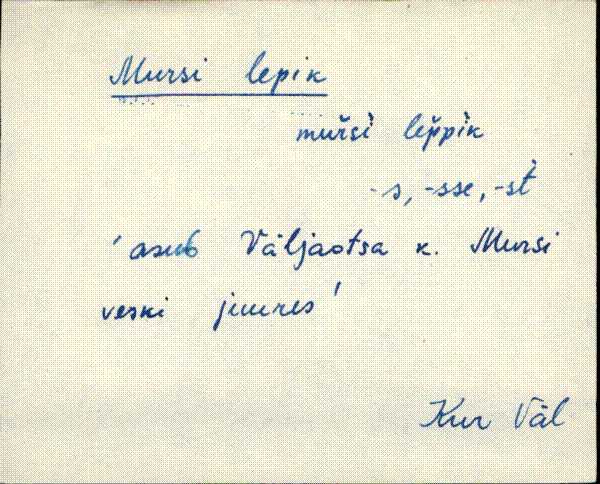 Mursi lepik
muŕsi lep̆pìk
-s, -sse, -st̀
'asub Väljaotsa k. Mursi
veski juures'
Kur Väl